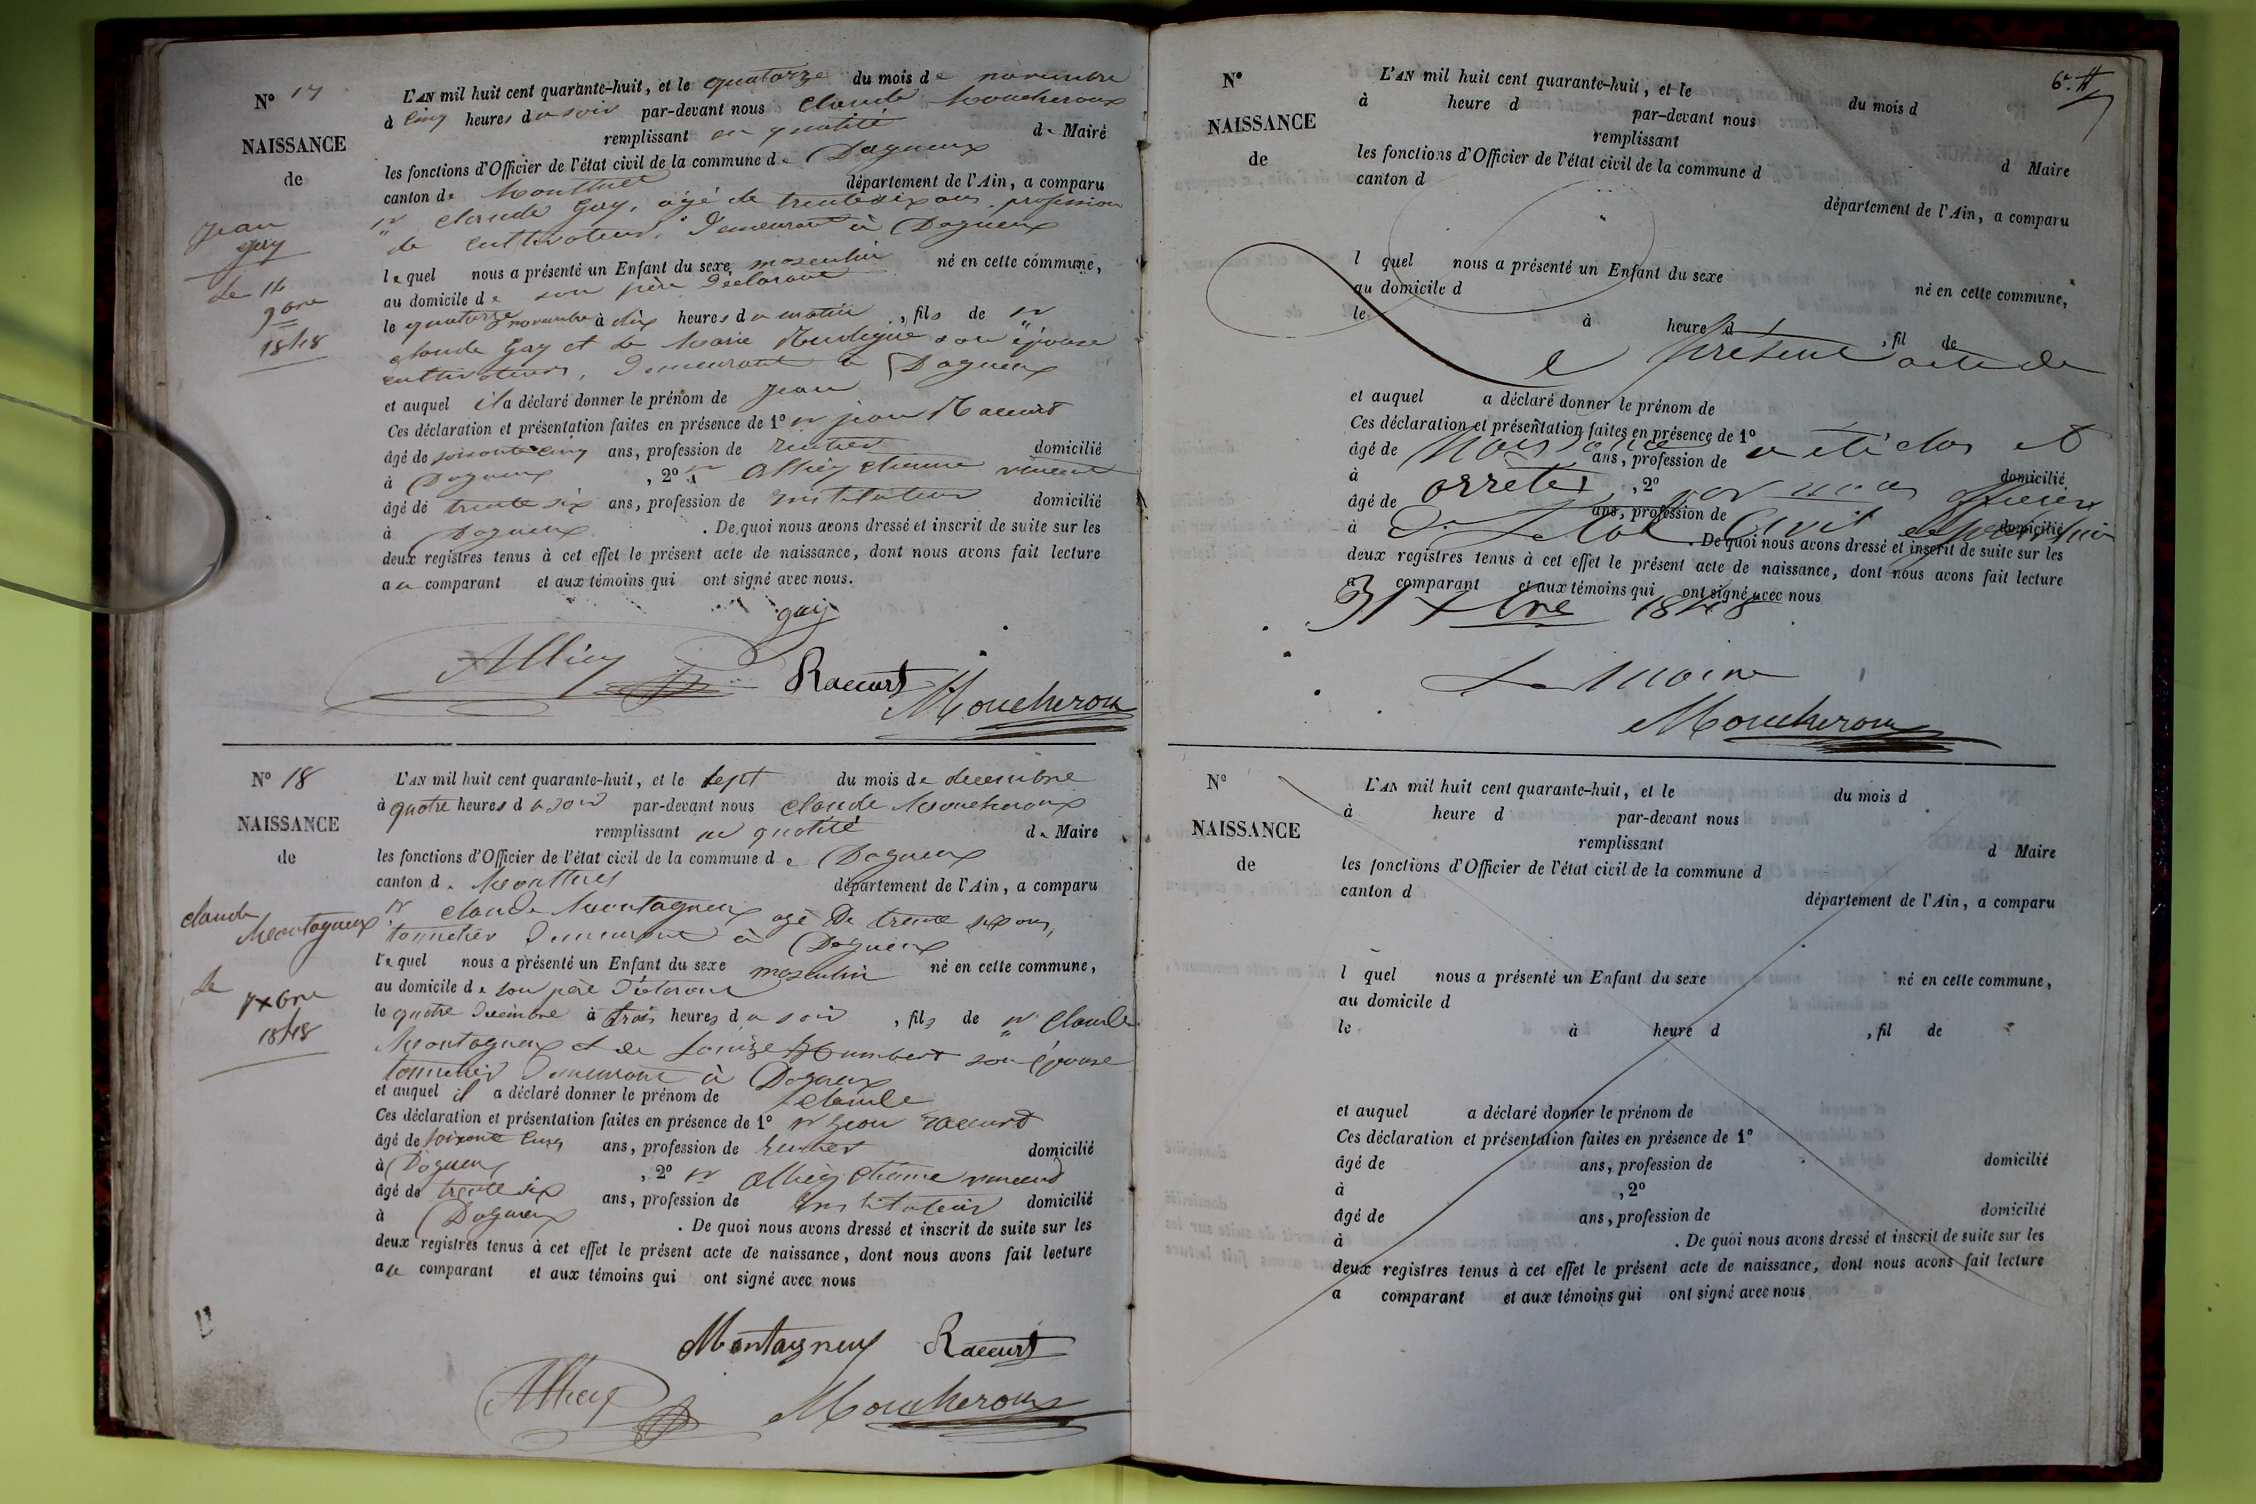 N° 17
NAISSANCE
de
Jean
gay
Le 14
9bre
1848
L'AN mil huit cent quarante-huit, et le quatorze du mois de novembre
à cinq heures du soir par-devant nous Claude Moucheroux
remplissant en qualité de Maire
les fonctions d'Officier de l'état civil de la commune de Dagneux
canton de Montluel département de l'Ain, a comparu
sr claude Gay, agé de trente six ans, profession
de cultivateur, demeurant à Dagneux
lequel nous a présenté un Enfant du sexe masculin né en cette commune,
au domicile de son père déclarant
le quatorze novembre à dix heures du matin, fils de sr
claude Gay et de Marie son épouse
cultivateurs, demeurant à Dagneux
et auquel il a déclaré donner le prénom de Jean
Ces déclaration et présentation faites en présence de 1° sr jean Raccurt
âgé de soixante cinq ans, profession de rentier domicilié
à Dagneux, 2° sr Alliey etienne vincent
âgé de trente six ans, profession de instituteur domicilié
à Dagneux. De quoi nous avons dressé et inscrit de suite sur les
deux registres tenus à cet effet le présent acte de naissance, dont nous avons fait lecture
au comparant et aux témoins qui ont signé avec nous.
gay
Alliey Raccurt Moucheroux
N° 18
NAISSANCE
de
claude
Montagneux
Le
7 xbre
1848
L'AN mil huit cent quarante-huit, et le sept du mois de decembre
à quatre heures du soir par-devant nous claude Moucheroux
remplissant en qualité de Maire
les fonctions d'Officier de l'état civil de la commune de Dagneux
canton de Montluel département de l'Ain, a comparu
sr claude Montagneux agé de trente six ans,
tonnelier demeurant à Dagneux
lequel nous a présenté un Enfant du sexe masculin né en cette commune,
au domicile de son père déclarant
le quatre decembre à trois heures du soir, fils de sr Claude
Montagneux et de Louize Humbert son épouse
tonnelier demeurant à Dagneux
et auquel il a déclaré donner le prénom de claude
Ces déclaration et présentation faites en présence de 1° sr jean raccurt
âgé de soixante cinq ans, profession de rentier domicilié
à Dagneux, 2° sr Alliey etienne vincent
âgé de trente six ans, profession de instituteur domicilié
à Dagneux. De quoi nous avons dressé et inscrit de suite sur les
deux registres tenus à cet effet le présent acte de naissance, dont nous avons fait lecture
au comparant et aux témoins qui ont signé avec nous
Montagneux Raccurt
Alliey Moucheroux
6e
N°
NAISSANCE
de
L'AN mil huit cent quarante-huit, et le du mois d
à heure d par-devant nous
remplissant d Maire
les fonctions d'Officier de l'état civil de la commune d
canton d département de l'Ain, a comparu
l quel nous a présenté un Enfant du sexe né en cette commune,
au domicile d
le à heure d, fil de
Le présent acte de
et auquel a déclaré donner le prénom de
Ces déclaration et présentation faites en présence de 1°
âgé de ans, profession de domicilié
naissance a été clos et
à, 2°
arrêté par nous officier
âgé de ans, profession de domicilié
De l'etat Civil
à. De quoi nous avons dressé et inscrit de suite sur les
deux registres tenus à cet effet le présent acte de naissance, dont nous avons fait lecture
a comparant et aux témoins qui ont signé avec nous
31 Xbre 1848
Le Maire
Moucheroux
N°
NAISSANCE
de
L'AN mil huit cent quarante-huit, et le du mois d
à heure d par-devant nous
remplissant d Maire
les fonctions d'Officier de l'état civil de la commune d
canton d département de l'Ain, a comparu
l quel nous a présenté un Enfant du sexe né en cette commune,
au domicile d
le à heure d, fil de
et auquel a déclaré donner le prénom de
Ces déclaration et présentation faites en présence de 1°
âgé de ans, profession de domicilié
à, 2°
âgé de ans, profession de domicilié
à. De quoi nous avons dressé et inscrit de suite sur les
deux registres tenus à cet effet le présent acte de naissance, dont nous avons fait lecture
a comparant et aux témoins qui ont signé avec nous